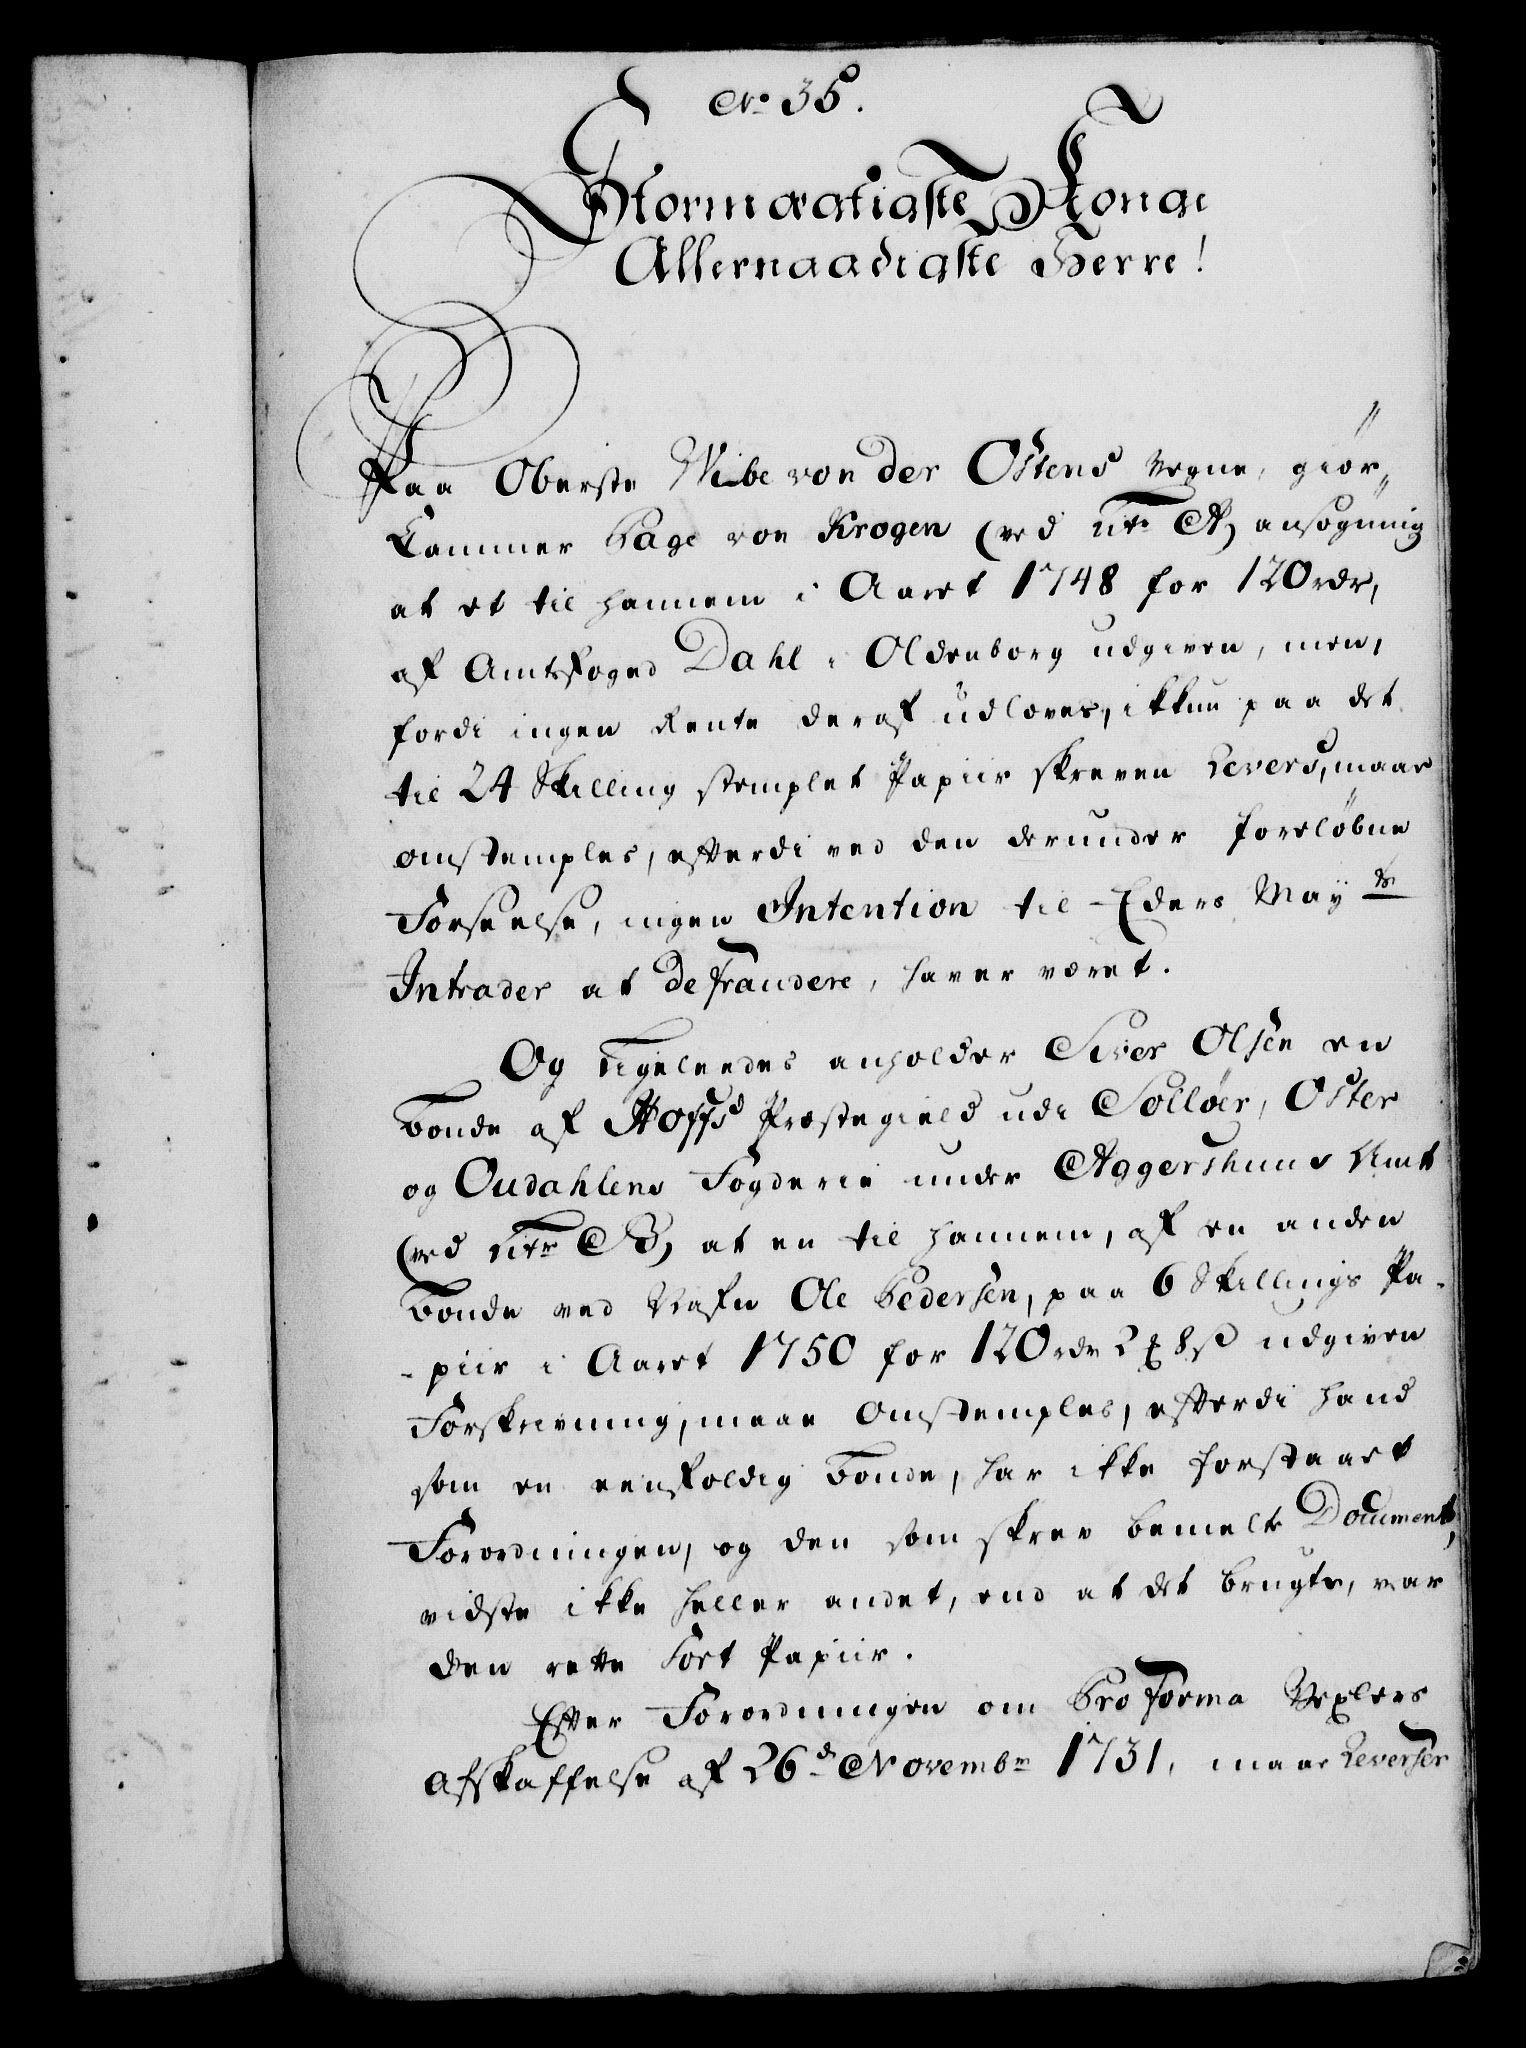 No 35.
Stormægtigste Konge
Allernaadigste Herre!
Paa Oberste Wibe von der Ostens Vegne, giør
Kammer Page von Krogen (ved Litr A) ansøgning
at et til hannem i Aaret 1748 for 120 rdr,
af Amtsfoged Dahl i Oldenborg udgiven, men,
fordi ingen Rente deraf udloves, ikkun paa det
til 24 Skilling stemplet Papiir skreven Revers, maae
omstemples, efterdi ved den derunder foreløbne
Forseelse, ingen Intention til Eders May ts
Intrader at defraudere, haver været.
Og ligeleedes anholder Siver Olsen en
bonde af Hoffs Præstegield udi Solløer, Oster
og Oudahlens Fogderie under Aggershuus Amt
(ved Litr B) at en til hannem, af en anden
bonde ved Nafn Ole Pedersen, paa 6 Skillings Pa-
-piir i Aaret 1750 for 120 rdr 2 ꝥ 8 ß udgiven
Forskrivning, maae omstemples, efterdi hand
som en eenfoldig bonde, har ikke forstaaet
Forordningen, og den som skrev bemelte Document,
vidste ikke heller andet, end at det brugte, var
den rette Sort Papiir.
Efter Forordningen om Pro Forma Vexlers
Afskaffelse af 26d Novembr 1731, maae Reverser